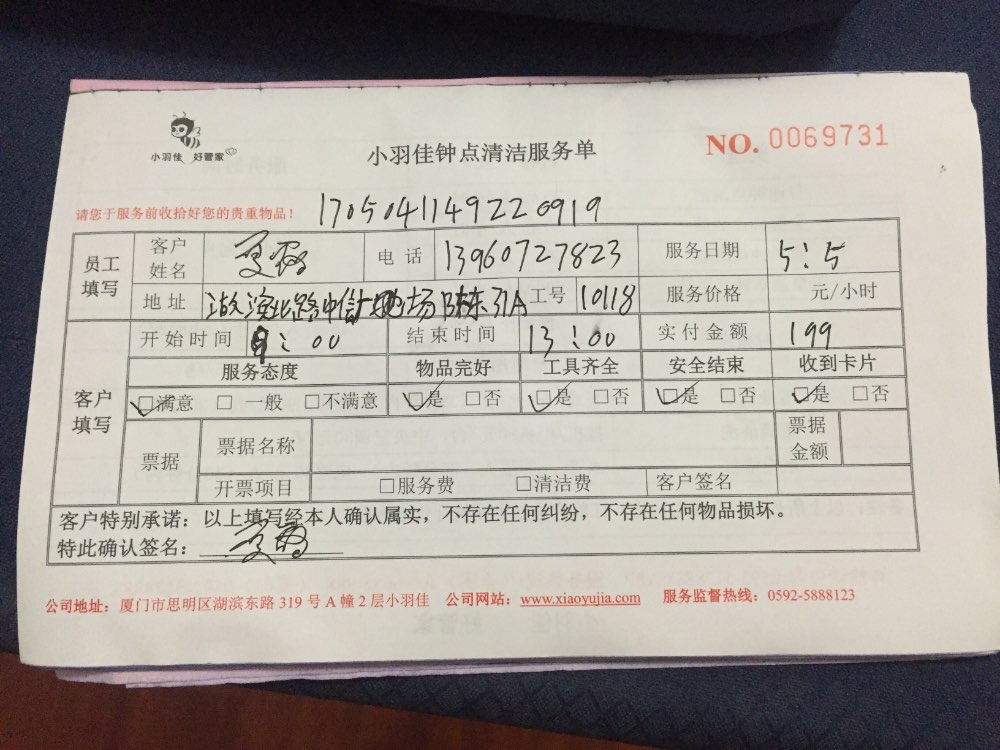 小羽佳 好管家
小羽佳钟点清洁服务单
NO. 0069731
请您于服务前收拾好您的贵重物品！ 1705041149220919
员工填写 客户姓名 夏 电话 13960727823 服务日期 5:5
地址 湖滨北路中信广场 31A 工号 10118 服务价格 元/小时
客户填写 开始时间 9:00 结束时间 13:00 实付金额 199
服务态度 物品完好 工具齐全 安全结束 收到卡片
☑满意 □ 一般 □不满意 ☑是 □否 ☑是 □否 ☑是 □否 ☑是 □否
票据 票据名称 票据金额
开票项目 □服务费 □清洁费 客户签名
客户特别承诺：以上填写经本人确认属实，不存在任何纠纷，不存在任何物品损坏。
特此确认签名： 夏
公司地址：厦门市思明区湖滨东路 319 号 A 幢 2 层小羽佳 公司网站：www.xiaoyujia.com 服务监督热线：0592-5888123